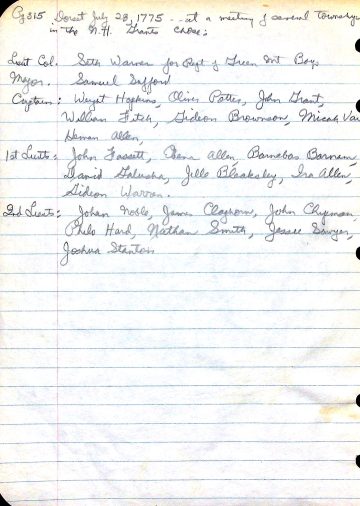 Pg 315 Dorset July 28, 1775 - - at a meeting of several townships
in the N.H. Grants chose:
Lieut Col. Seth Warner for Regt of Green Mt Boys
Major. Samuel Safford
Captains: Weight Hopkins, Oliver Potter, John Grant,
William Fitch, Gideon Brownson, Micah Vail
Heman Allen,
1st Lieuts: John Fassett, Ebena Allen, Barnabas Barnum
David Galusha, Jelle Blakesley, Ira Allen,
Gideon Warren.
2nd Lieuts: Johan Noble, James Claghorn, John Chipman
Philo Hard, Nathan Smith, Jessee Sawyer,
Joshua Stanton